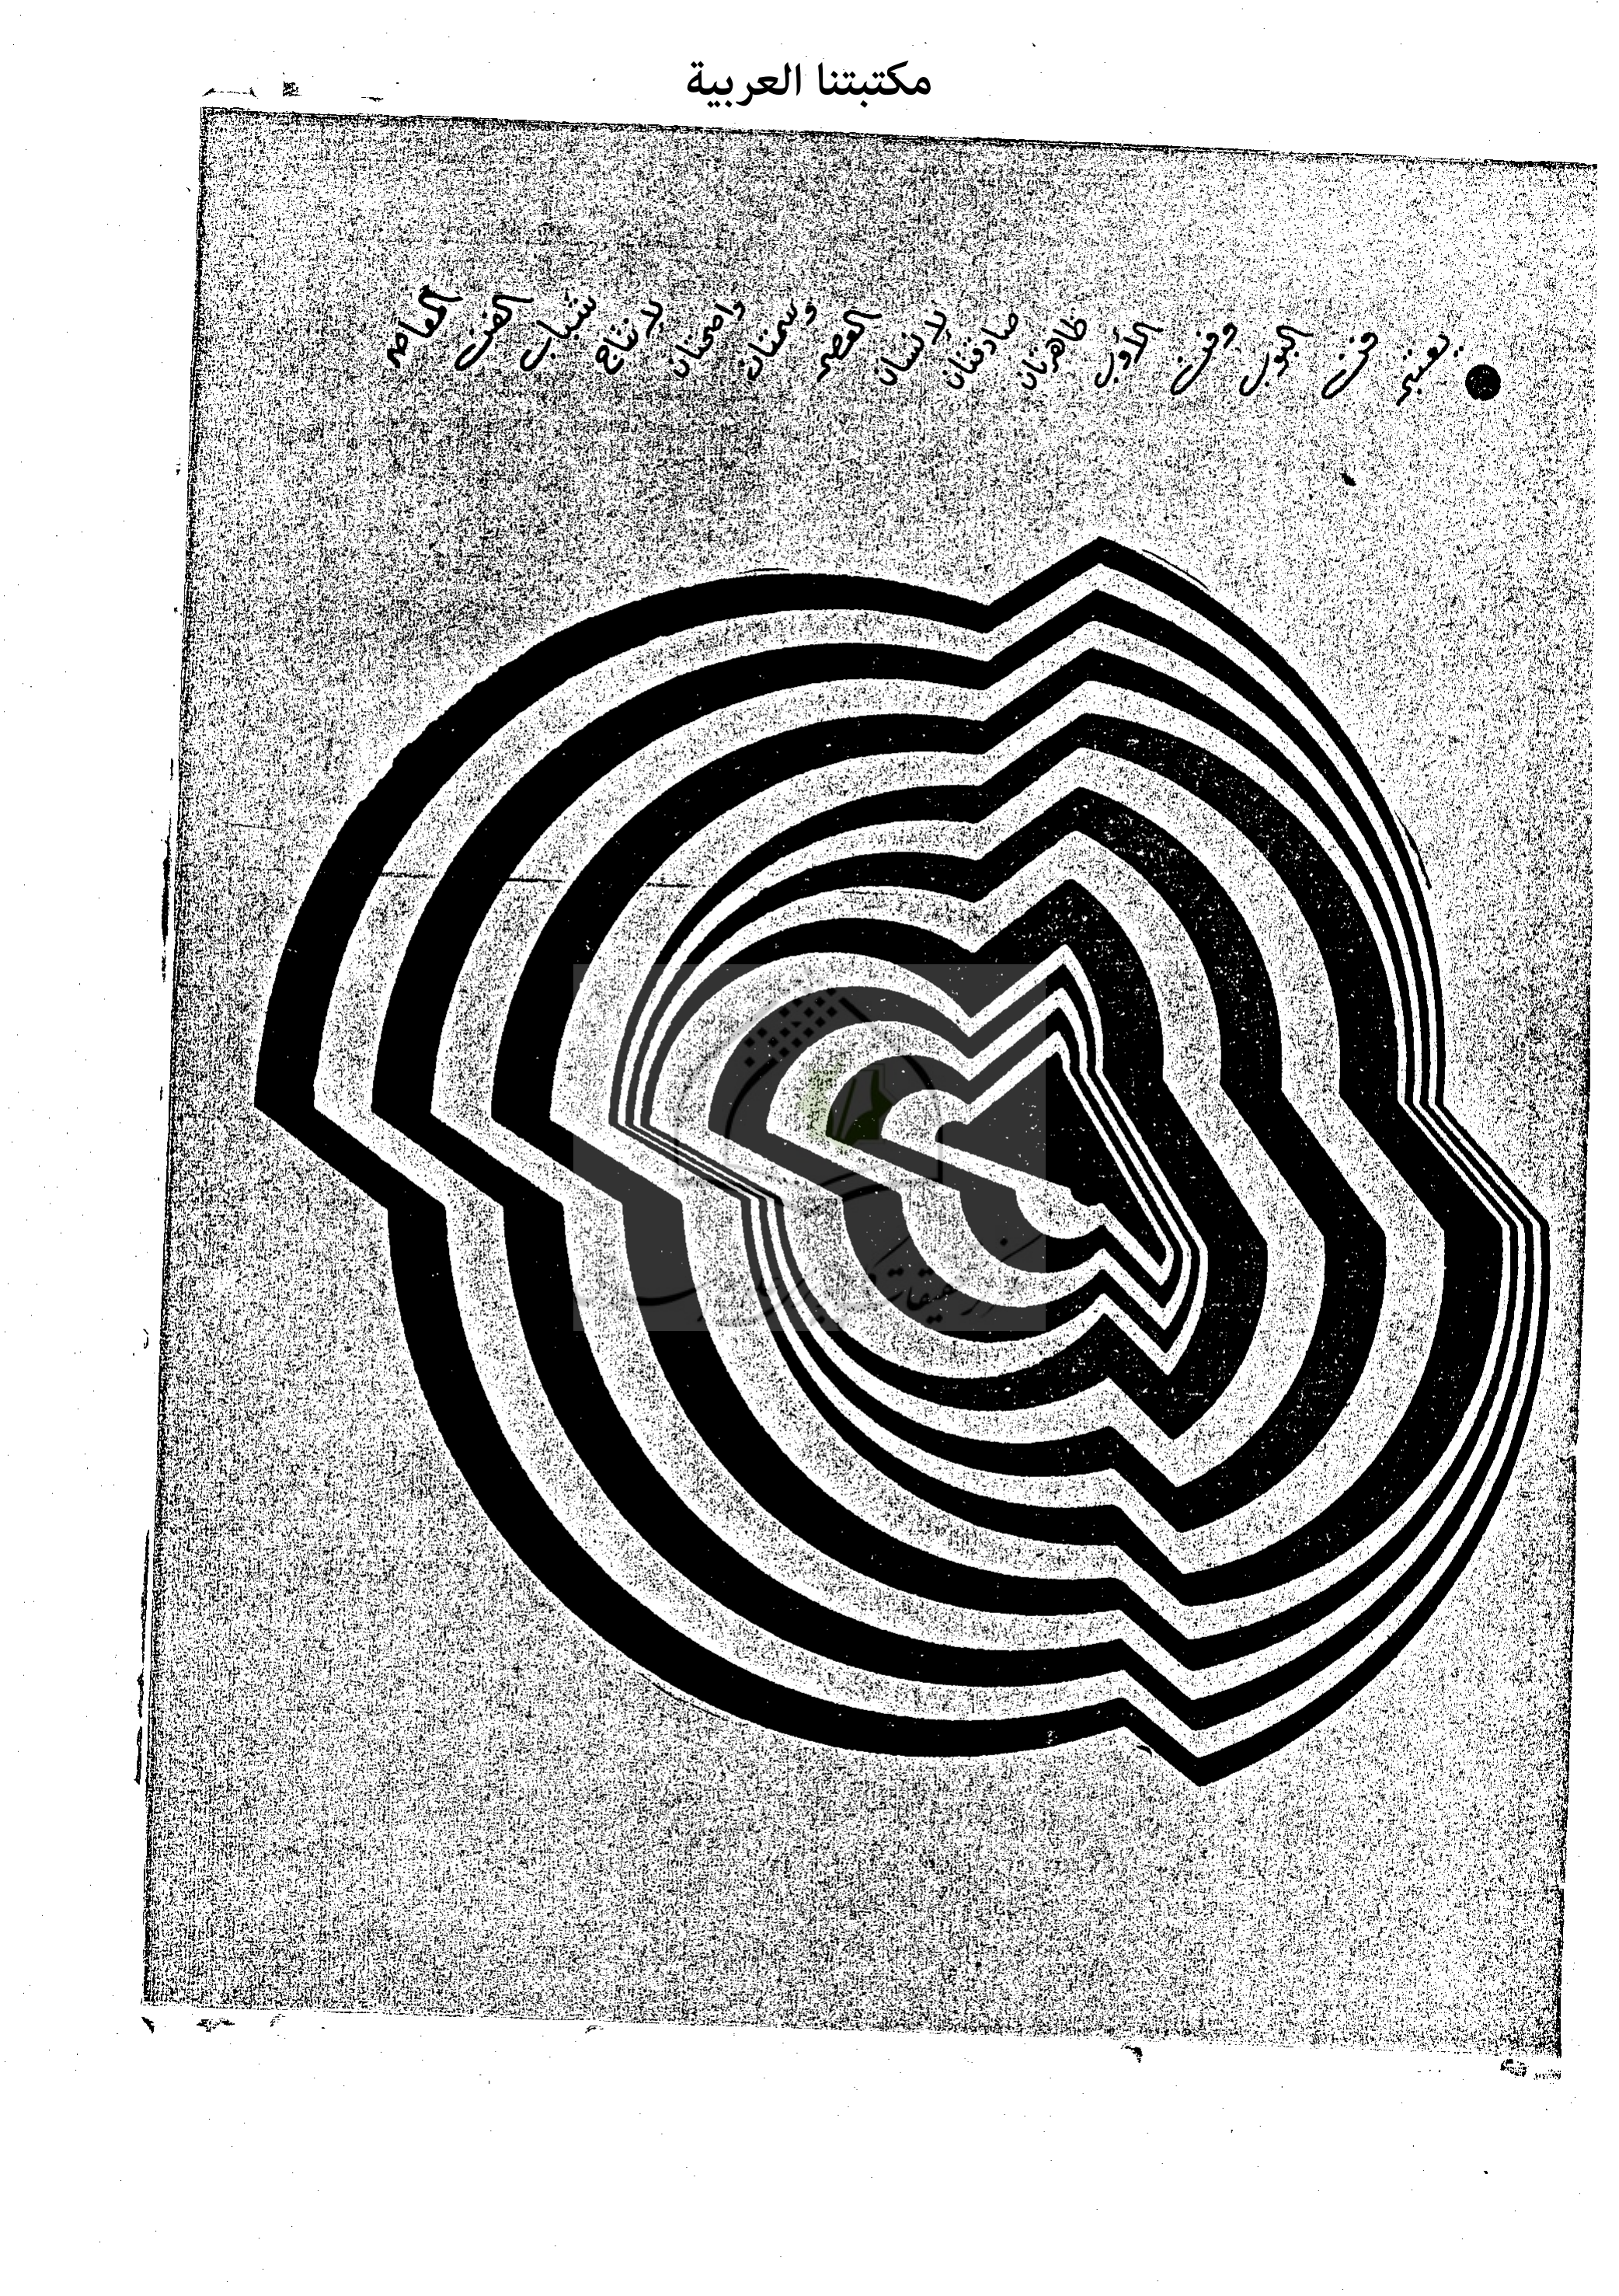 مكتبتنا العربية
يعتبر فن البوب وفن الأوب ظاهرتان صادقتان لإنسان العصر وسمتان واضحتان لإنتاج شباب الفن المعاصر